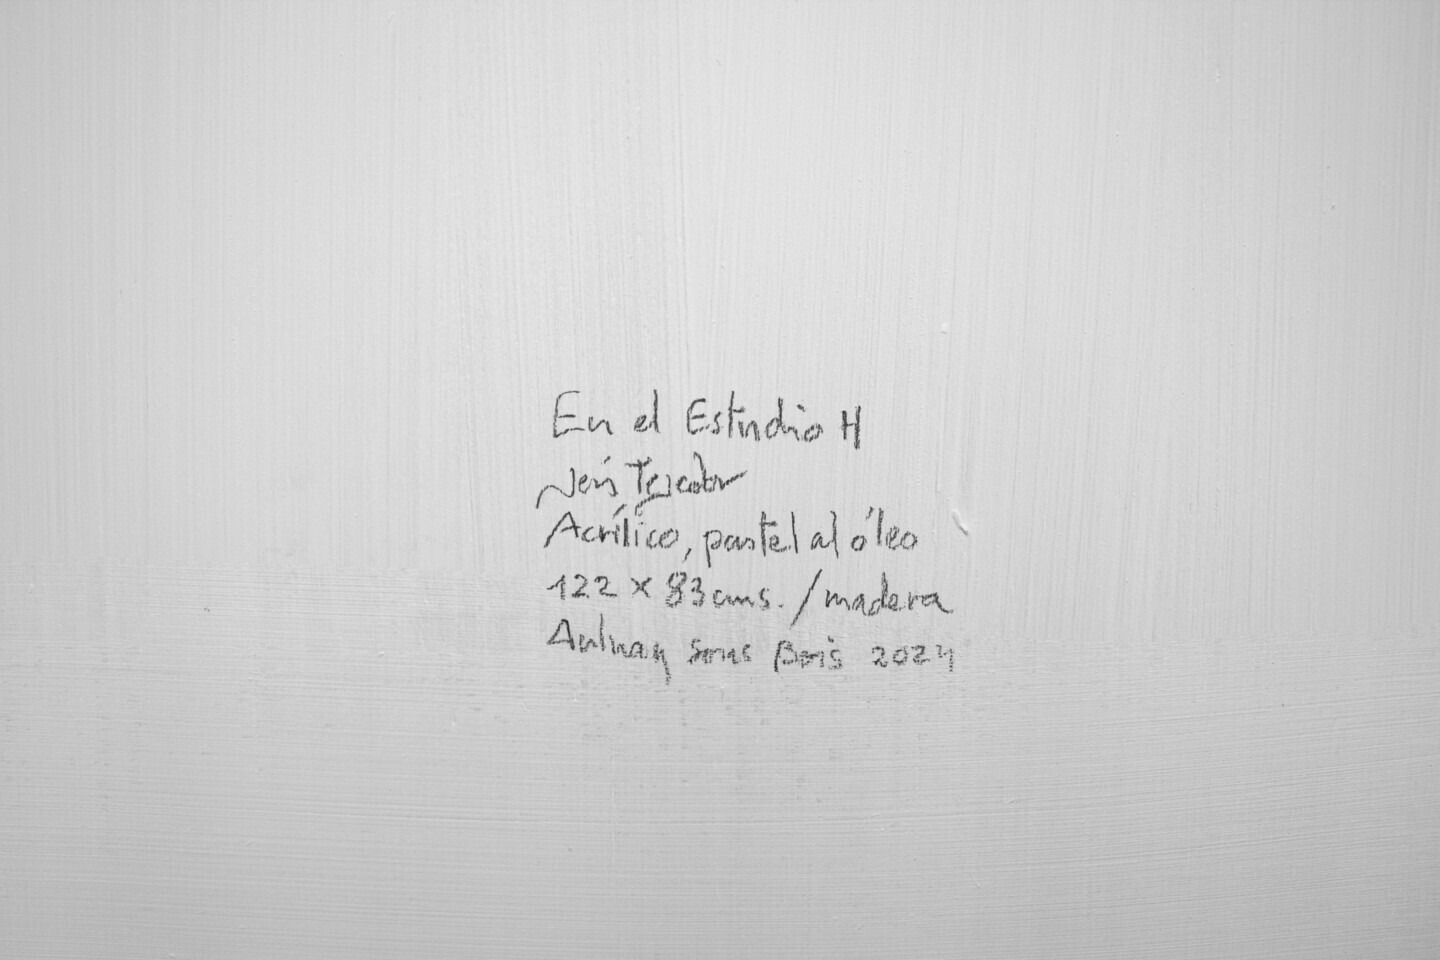 En el Estudio H
Tejedor
Acrílico, pastel al óleo
122 x 83 cms. / madera
Aulnay Sous Bois 2024